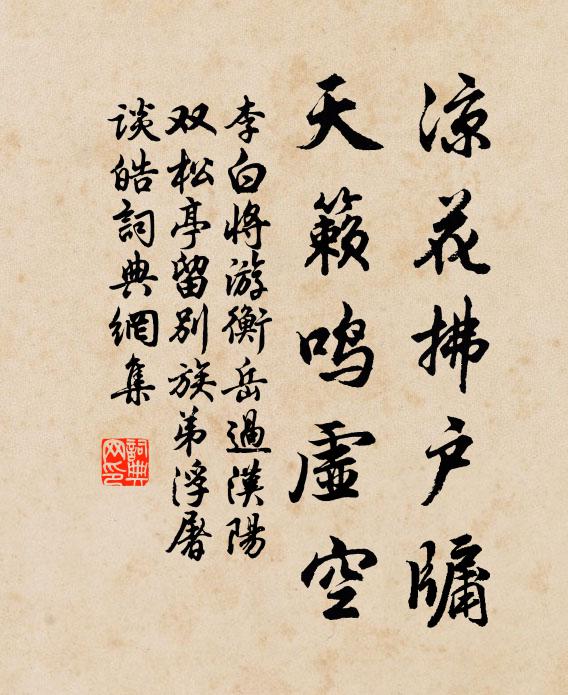 凉花拂户牖
天籁鸣虚空
李白将游衡岳過漢陽
双松亭留别族弟浮屠
谈皓詞典網集
詞典网印